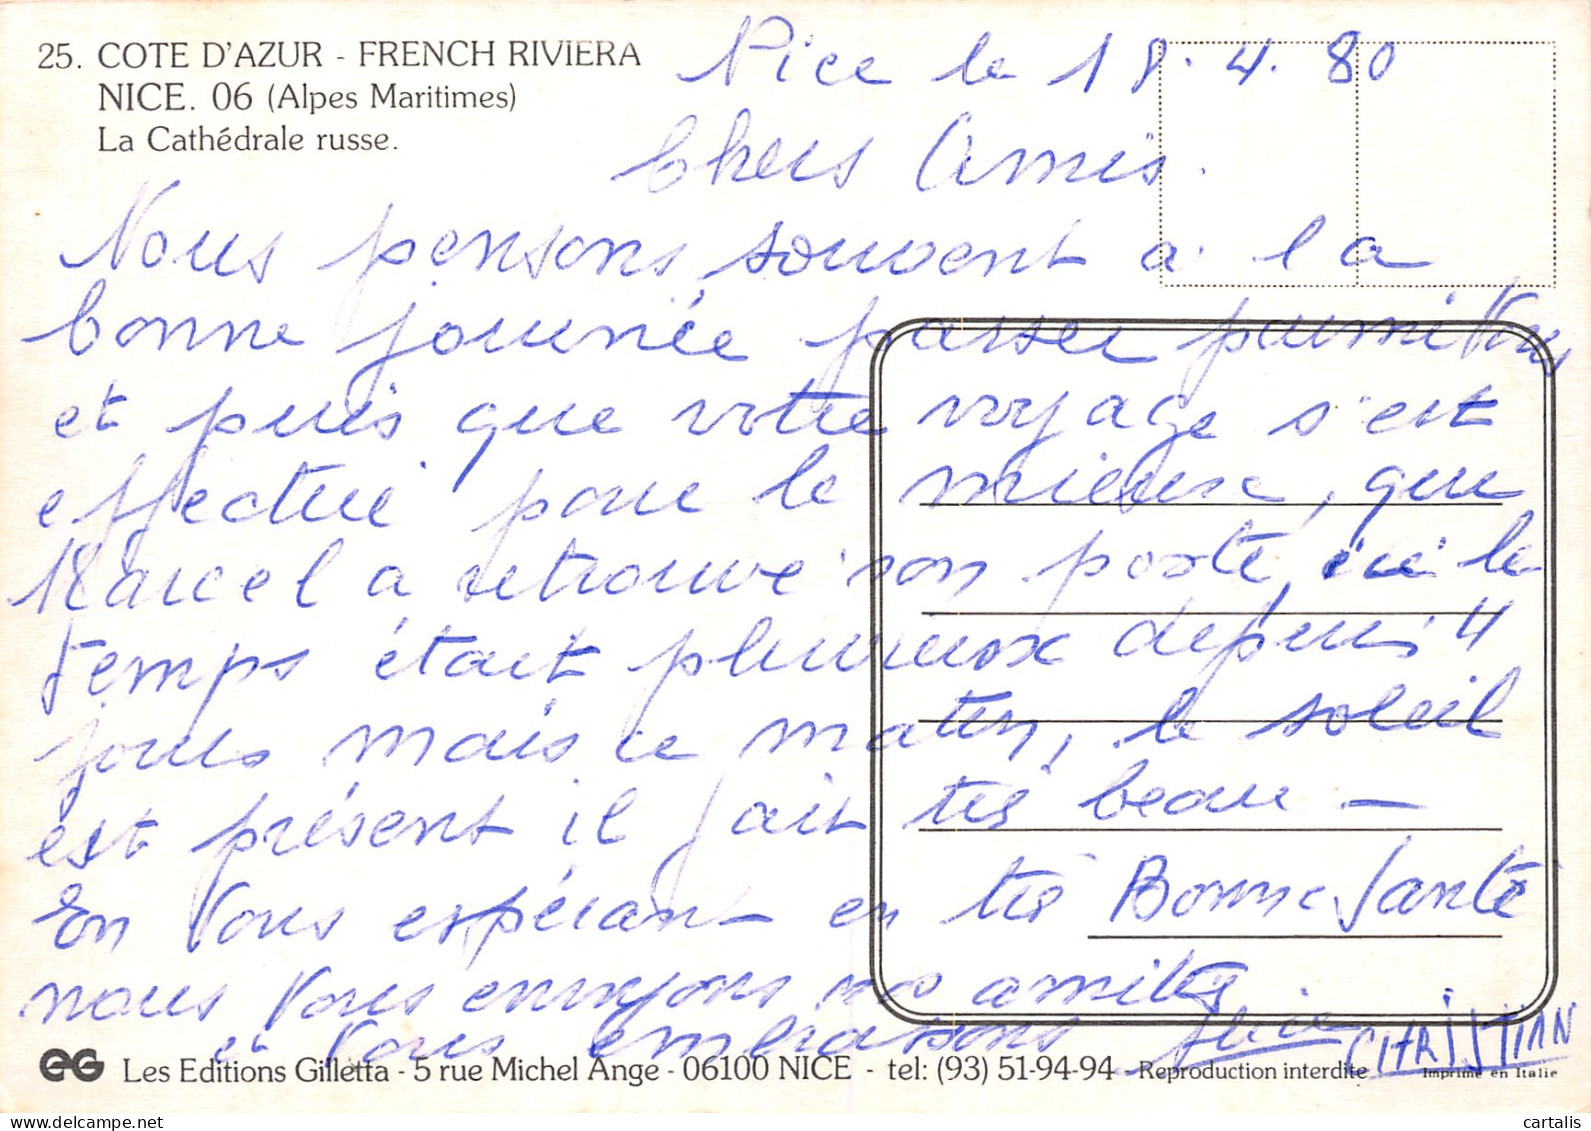 25. COTE D'AZUR - FRENCH RIVIERA
NICE. 06 (Alpes Maritimes)
La Cathédrale russe.
Nice le 18.4.80
Chers Amis.
Nous pensons souvent a la
bonne journée passer parmi Vous
et puis que votre voyage s'est
effectué pour le mieux, que
Marcel a retrouvé son poste, ici le
temps était pluvieux depuis 4
jours mais ce matin, le soleil
est présent il fait très beau -
En Vous espérant en très Bonne Santé
nous Vous envoyons nos amitiés
et Vous embrassons CHRISTIAN
EG Les Editions Gilletta - 5 rue Michel Ange - 06100 NICE - tel: (93) 51-94-94 - Reproduction interdite Imprimé en Italie
cartalis